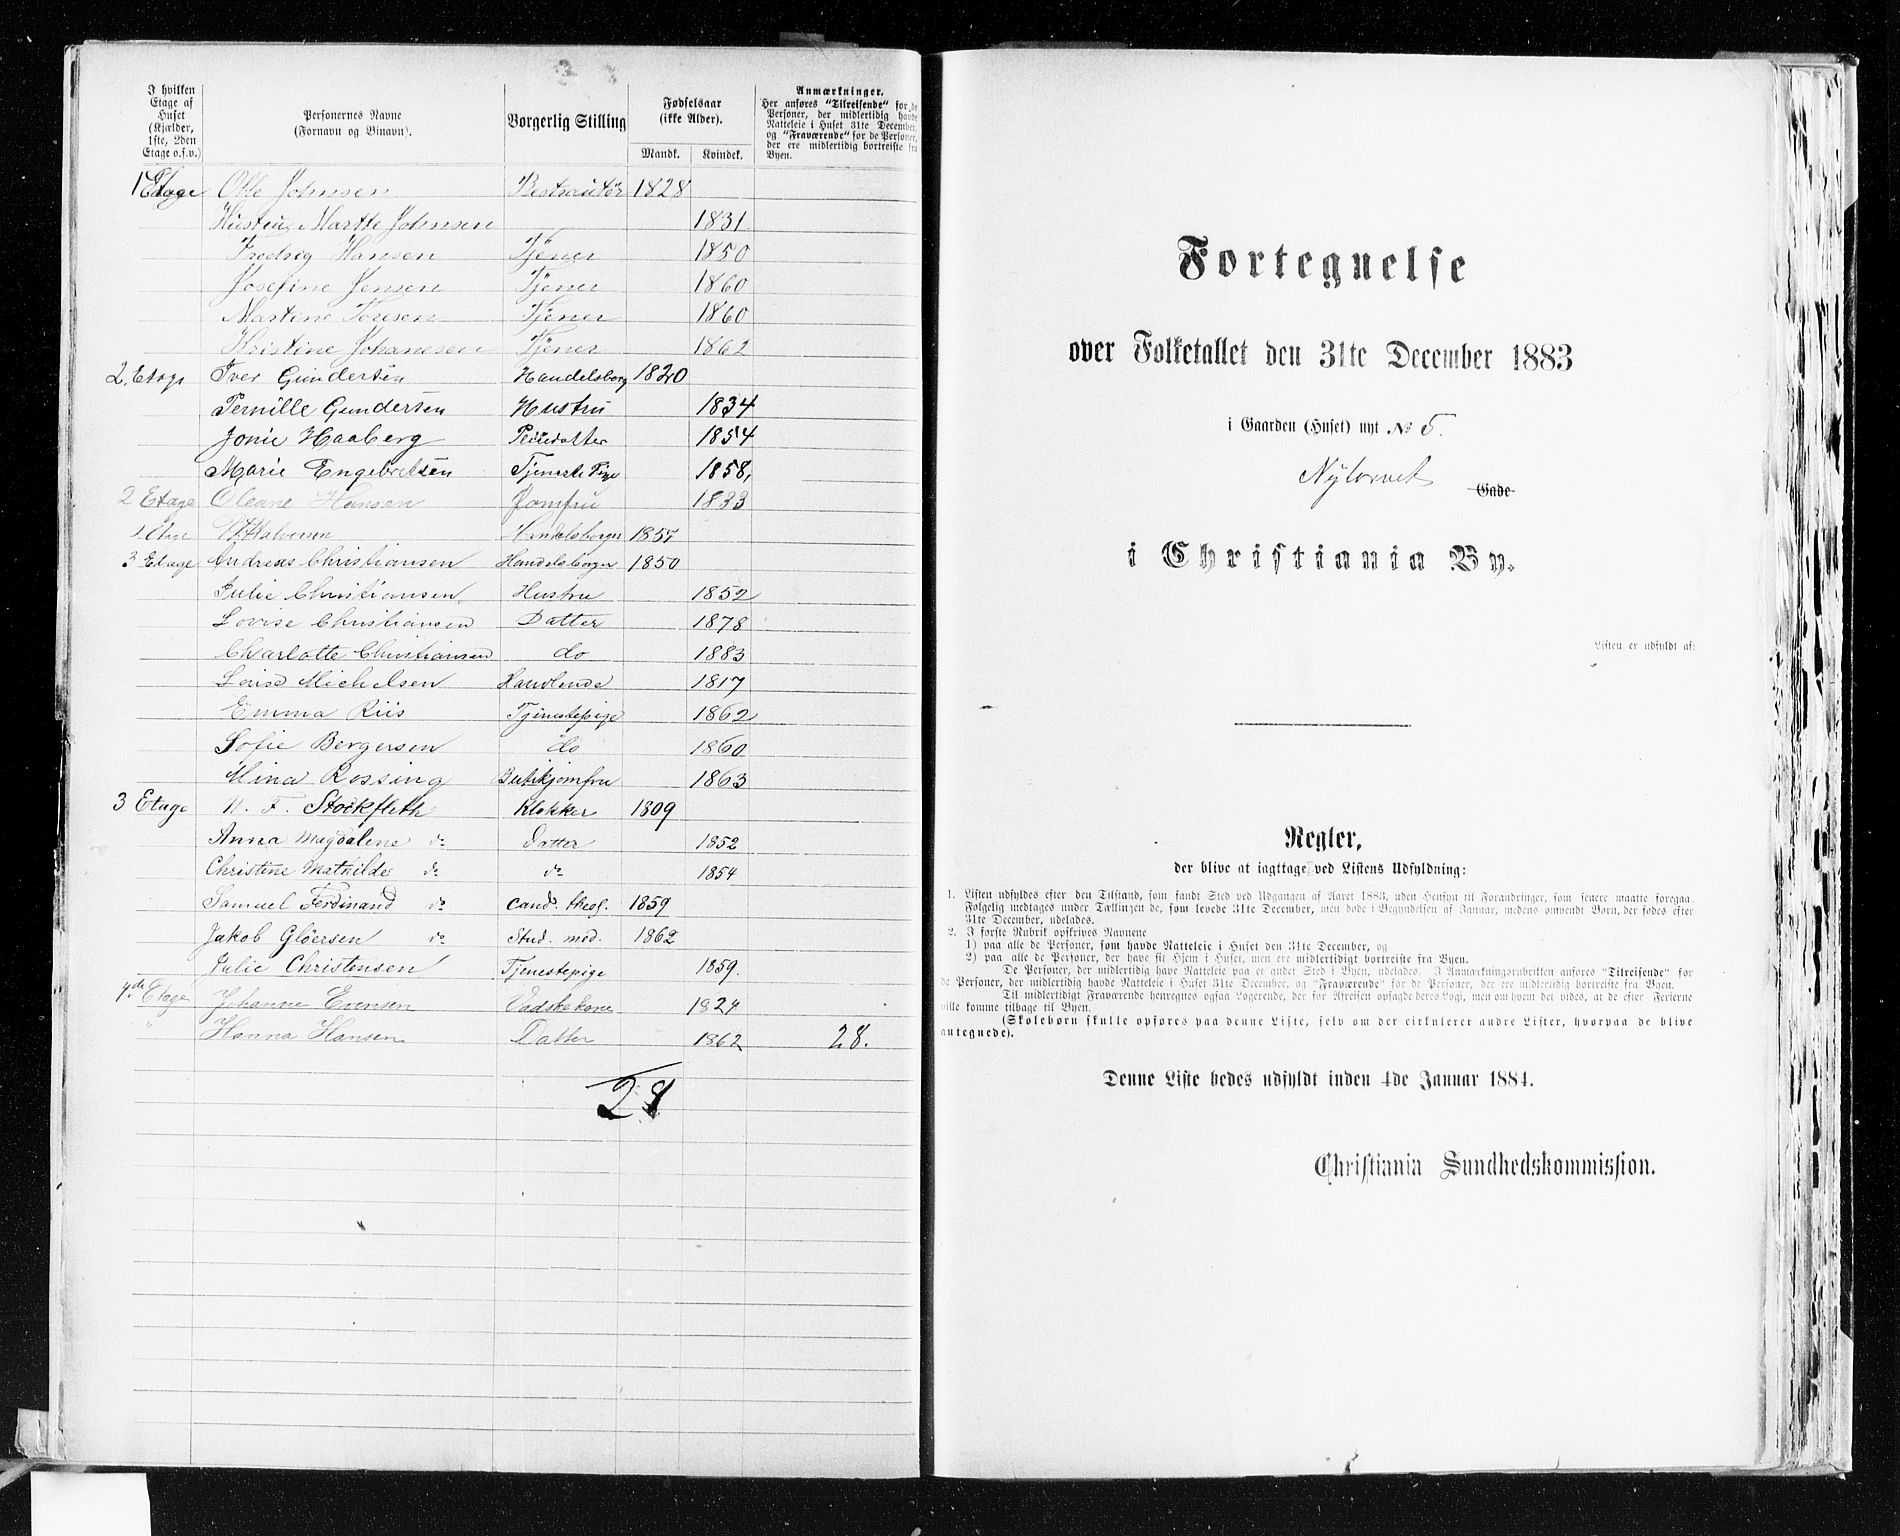 I hvilken
Etage af
Huset
(Kjælder,
1ste, 2den
Etage o.s.v.)
Personernes Navne
(Fornavn og Binavn).
Borgerlig Stilling
Fødselsaar
(ikke Alder).
Mandk. Kvindek.
Anmærkninger.
Her anføres "Tilreisende" for de
Personer, der midlertidig havde
Natteleie i Huset 31te December,
og "Fraværende" for de Personer,
der ere midlertidig bortreiste fra
Byen.
1 Etage Olle Johnsen Restrautør 1828
Hustru Marthe Johnsen 1831
Fredrig Hansen Tjener 1850
Josefine Jensen Tjener 1860
Martine Toresen Tjener 1860
Kristine Johannesen Tjener 1862
2. Etage Iver Gundersen Handelsborg 1820
Pernille Gundersen Hustru 1834
Jonie Haaberg Pleiedatter 1854
Marie Engebretsen Tjeneste Pige 1858,
2 Etage Oleane Hansen Jomfru 1833
Etage Halvorsen Handelsborger 1857
3 Etage Andreas Christiansen Handelsborger 1850
Julie Christiansen Hustru 1852
Lovise Christiansen Datter 1878
Charlotte Christiansen do 1883
Lovise Michelsen Handlende 1817
Emma Riis Tjenestepige 1862
Sofie Bergersen do 1860
Mina Rossing Butikjomfru 1863
3 Etage N. F. Stockfleth Klokker 1809
Anna Magdalene do Datter 1852
Christine Mathilde do do 1854
Samuel Ferdinand do Cand. theol. 1859
Jakob Gløersen do Stud. med. 1862
Julie Christensen Tjenestepige 1859.
4de Etage Johanne Evensen Vadskekone 1824
" Hanna Hansen Datter 1862 28.
28
Fortegnelse
over Folketallet den 31te December 1883
i Gaarden (Huset) nyt No 5.
Nytorvet Gade
i Christiania By.
Listen er udfyldt af:
Regler,
der blive at iagttage ved Listens Udfyldning:
1. Listen udfyldes efter den Tilstand, som fandt Sted ved Udgangen af Aaret 1883, uden Hensyn til Forandringer, som senere maatte foregaa.
Følgelig medtages under Tællingen de, som levede 31te December, men døde i Begyndelsen af Januar, medens omvendt Børn, der fødes efter
31te December, udelades.
2. I første Rubrik opskrives Navnene
1) paa alle de Personer, som havde Natteleie i Huset den 31te December, og
2) paa alle de Personer, der have sit Hjem i Huset, men ere midlertidigt bortreiste fra Byen.
De Personer, der midlertidig have Natteleie paa et andet Sted i Byen, udelades. I Anmærkningsrubriken anføres "Tilreisende" for
de Personer, der midlertidig havde Natteleie i Huset 31te December, og "Fraværende" for de Personer, der ere midlertidig bortreiste fra Byen.
Til midlertidigt Fraværende henregnes ogsaa Logerende, der før Afreisen opsagde deres Logi, men om hvem det vides, at de efter Ferierne
ville komme tilbage til Byen.
(Skolebørn skulle opføres paa denne Liste, selv om der cirkulerer andre Lister, hvorpaa de blive
antegnede).
Denne Liste bedes udfyldt inden 4de Januar 1884.
Christiania Sundhedskommission.